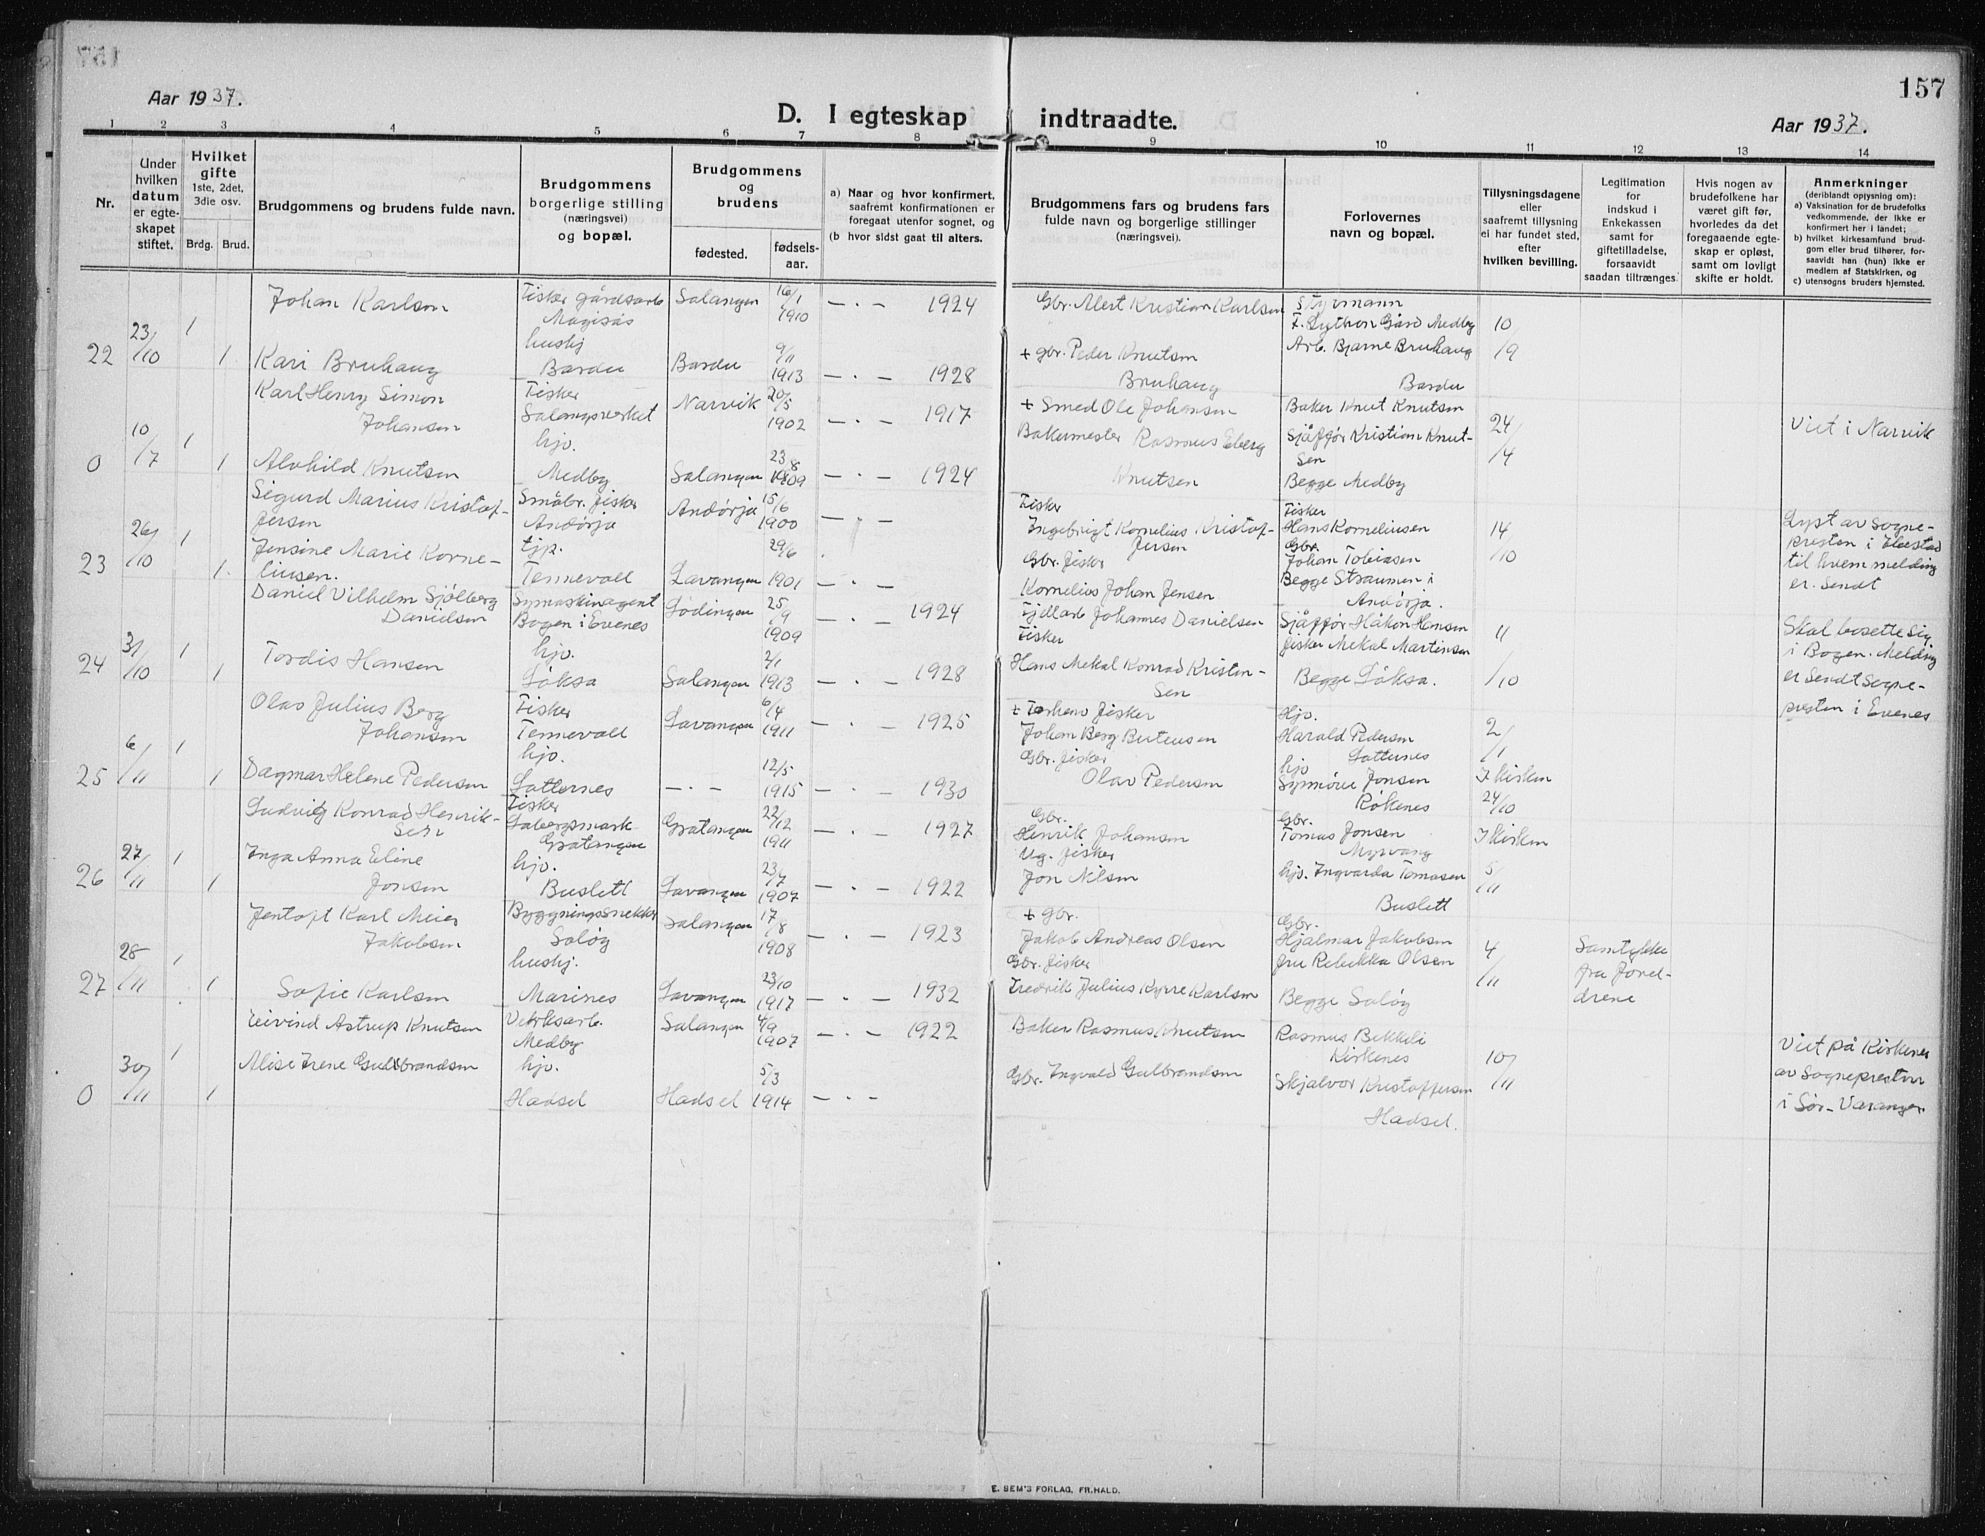 157
Aar 1937.
D. I egteskap indtraadte.
Aar 1937.
1 2 3 4 5 6 7 8 9 10 11 12 13 14
Nr.
Under hvilken datum er egteskapet stiftet.
Hvilket gifte 1ste, 2det, 3die osv.
Brdg. Brud.
Brudgommens og brudens fulde navn.
Brudgommens borgerlige stilling (næringsvei) og bopæl.
Brudgommens og brudens
fødested. fødselsaar.
a) Naar og hvor konfirmert, saafremt konfirmationen er foregaat utenfor sognet, og
(b hvor sidst gaat til alters.
Brudgommens fars og brudens fars fulde navn og borgerlige stillinger (næringsvei).
Forlovernes navn og bopæl.
Tillysningsdagene eller saafremt tillysning ei har fundet sted, efter hvilken bevilling.
Legitimation for indskud i Enkekassen samt for giftetilladelse, forsaavidt saadan tiltrænges.
Hvis nogen av brudefolkene har været gift før, hvorledes da det foregaaende egteskap er opløst, samt om lovligt skifte er holdt.
Anmerkninger (deriblandt opjysning om):
a) Vaksination for de brudefolks vedkommende, der ikke er konfirmert her i landet;
b) hvilket kirkesamfund brudgom eller brud tilhører, forsaavidt han (hun) ikke er medlem av Statskirken, og
c) utensogns bruders hjemsted.
22 23/10 1 Johan Karlsen Fisker gårdsarb Salangen 16/1 1910 — · — 1924 Gbr. Alert Kristian Karlsen Styrmann
Medby 10/9
1 Kari Bruhaug hushj Bardu Bardu 9/11 1913 — · — 1928 + gbr. Peder Knutsen Bruhaug Arb. Bjarne Bruhaug Bardu
0 10/7 1 Karl Henry Simon Johansen Fisker Salangsverket Narvik 20/5 1902 — · — 1917 + Smed Ole Johansen Baker Knut Knutsen 24/4 Viet i Narvik
1 Alvhild Knutsen hjv. Medby Salangen 23/8 1909 — · — 1924 Bakermester Rasmus Eberg Knutsen Sjåffør Kristian Knutsen Begge Medby
23 26/10 1 Sigurd Marius Kristoffersen Småbr. fisker Andørja Andørja 15/6 1900 — · — Fisker Ingebrigt Kornelius Kristoffersen Fisker Hans Korneliusen 14/10 Lyst av Sognepresten i Ibestad til hvem melding er Sendt
1. Jensine Marie Korneliusen. tjp. Tennevoll Lavangen 29/6 1901 — · — Gbr. fisker Kornelius Johan Jensen Gbr. Johan Tobiasen Begge Straumen i Andørja.
24 31/10 1 Daniel Vilhelm Sjölberg Danielsen Symaskinagent Bogen i Evenes Lødingen 25/9 1909 — · — 1924 Johannes Danielsen Sjåffør Håkon Hansen 11/10 Skal bosette sig i Bogen. Melding er Sendt Sognepresten i Evenes
1 Tordis Hansen hjv. Løksa Salangen 2/1 1913 — · — 1928 Fisker Hans Mekal Konrad Kristensen fisker Mekal Martinsen Begge Løksa.
25 6/11 1 Olav Julius Berg Johansen Fisker Tennevoll Lavangen 6/4 1911 — · — 1925 + fisker Johan Berg Hjv. Harald Pedersen 2/1 I kirken
1 Dagmar Helene Pedersen hjv. — · — 12/5 1915 — · — 1930 Gbr. fisker Olav Pedersen hjv Synnöve Jonsen Røkenes
26 27/11 1 Ludvig Konrad Henriksen Fisker Gratangen Gratangen 22/12 1911 — · — 1927 Gbr. Henrik Johansen Gbr. Tomas Jonsen Myrvang 24/10 I kirken 5/11
1 Inga Anna Eline Jonsen hjv. Buslett Lavangen 23/7 1907 — · — 1922 Ug. fisker Jon Nilsen hjv. Ingvarda Tomasen Buslett
27 28/11 1 Jentoft Karl Meier Jakobsen Bygningssnekker Søløy Salangen 17/8 1908 — · — 1923 + gbr. Jakob Andreas Olsen Gbr. Hjalmar Jakobsen 4/11 Samtykke fra foreldrene
1 Sofie Karlsen hushj. Marines Lavangen 23/10 1917 — · — 1932 Gbr. fisker Fredrik Julius Kyrre Karlsen fru Rebekka Olsen Begge Søløy
0 30/11 1 Eivind Astrup Knutsen Verksarb. Medby Salangen 4/9 1907 — · — 1922 Baker Rasmus Knutsen Rasmus Bekkeli Kirkenes 10/11 Viet på Kirkenes av Sognepresten i Sør-Varanger
1 Alise Irene Gulbrandsen hjv. Hadsel Hadsel 5/3 1914 — · — Gbr. Ingvald Gulbrandsen Skjalvor Kristoffersen Hadsel.
E. SEM'S FORLAG, FR.HALD.